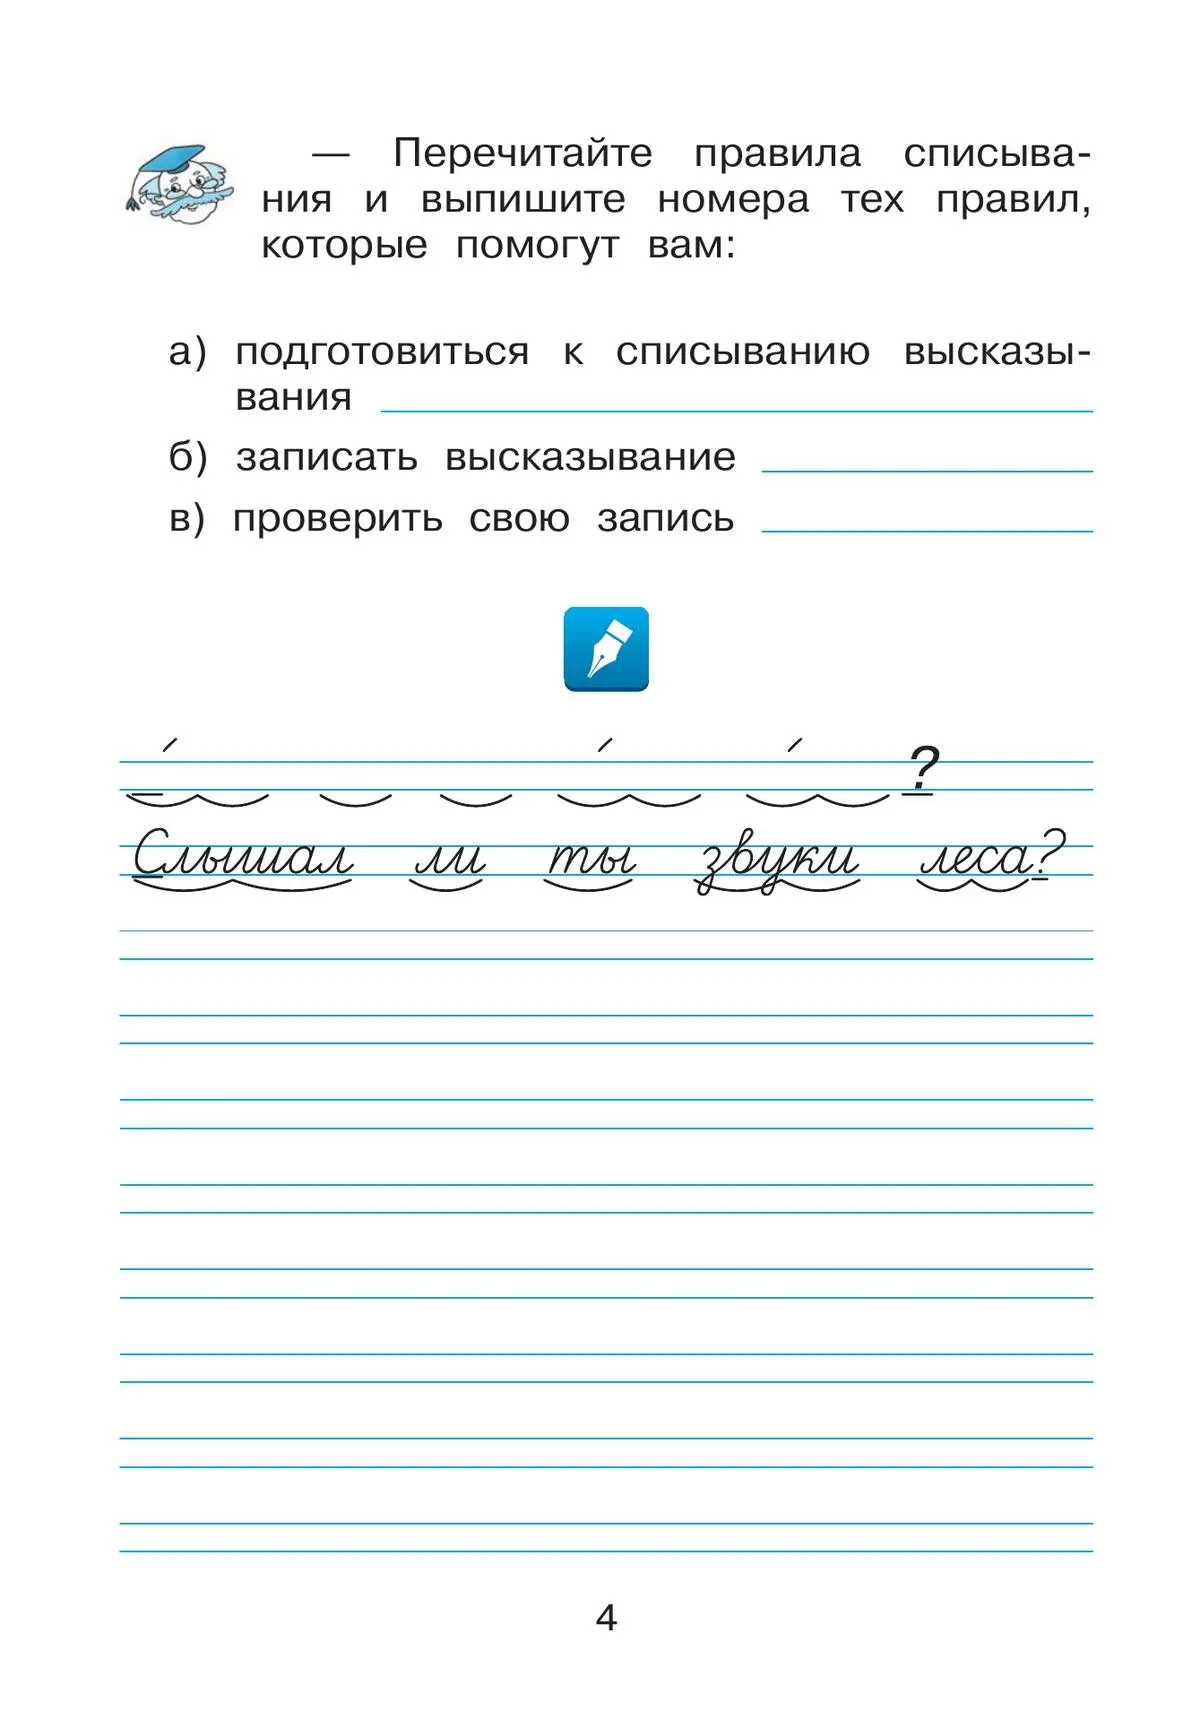 — Перечитайте правила списыва-
ния и выпишите номера тех правил,
которые помогут вам:
а) подготовиться к списыванию высказы-
вания
б) записать высказывание
в) проверить свою запись
?
Слышал ли ты звуки леса?
4